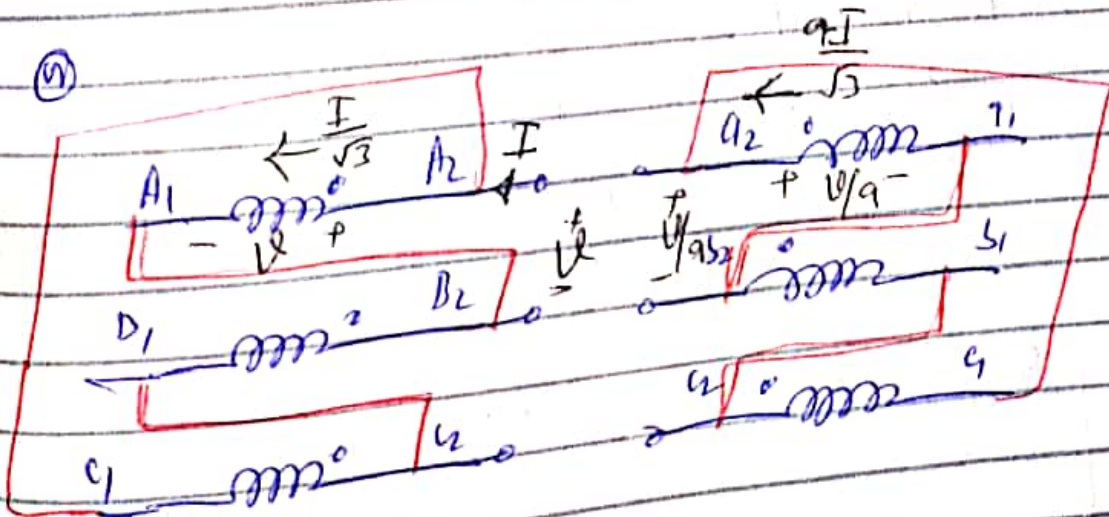 aI/√3
I/√3
A1 A2 I a2 a1
- V + + V/a -
B2 + V - + V/a - b2 b1
D1
C2 c2 c1
C1